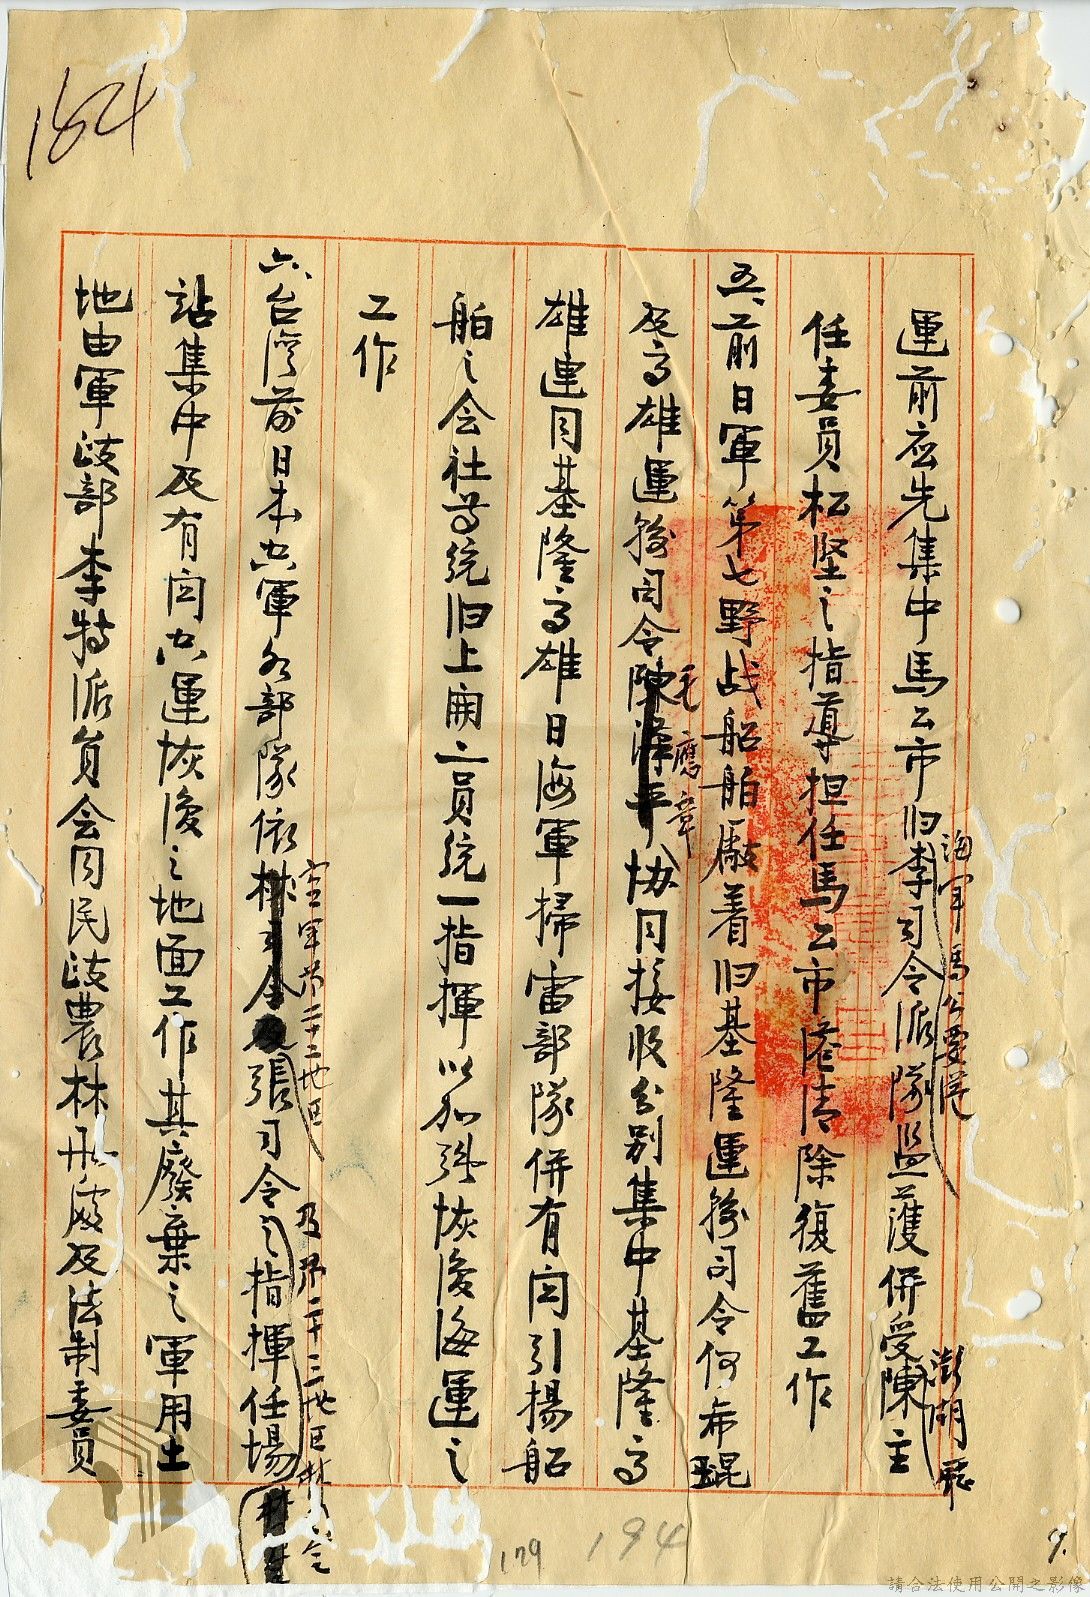 184
運前应先集中馬公市归李司令派隊監護併受陳主
海軍馬公要港
澎湖
任委員松堅之指導担任馬公市港清除復舊工作
五、前日軍第七野战船舶廠着归基隆運输司令何希琨
及高雄運输司令協同接收分别集中基隆高
毛應章
雄連同基隆高雄日海軍掃雷部隊併有関引揚船
舶之会社等統归上開二員統一指揮以加强恢復海運之
工作
六、台湾前日本空軍各部隊依張司令之指揮任場
空軍第二十二地区
及第二十三地区林司令
站集中及有関空運恢復之地面工作其廢棄之軍用土
地由軍政部李特派員会同民政農林處及法制委員
179
194
請合法使用公開之影像